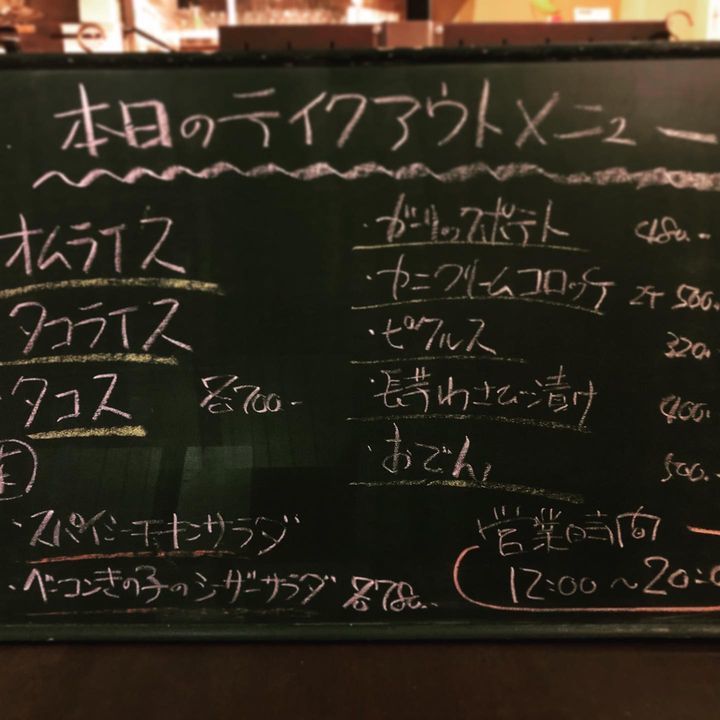 本日のテイクアウトメニュー
オムライス
タコライス
・タコス 各700.-
・スパイシーチキンサラダ
・ベーコンきの子のシーザーサラダ 各780.-
・ガーリックスポテト 480.-
・カニクリームコロッケ 2ケ 500.
・ピクルス 320.
・長芋わさび漬け 400.
・おでん 500.
営業時間
12:00～20:0